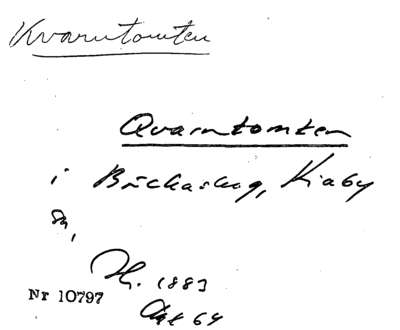 Kvarntomten
Qvarntomten
i Bäckaskog, Kiaby
Sn,
1883
Nr 10797
Akt 64